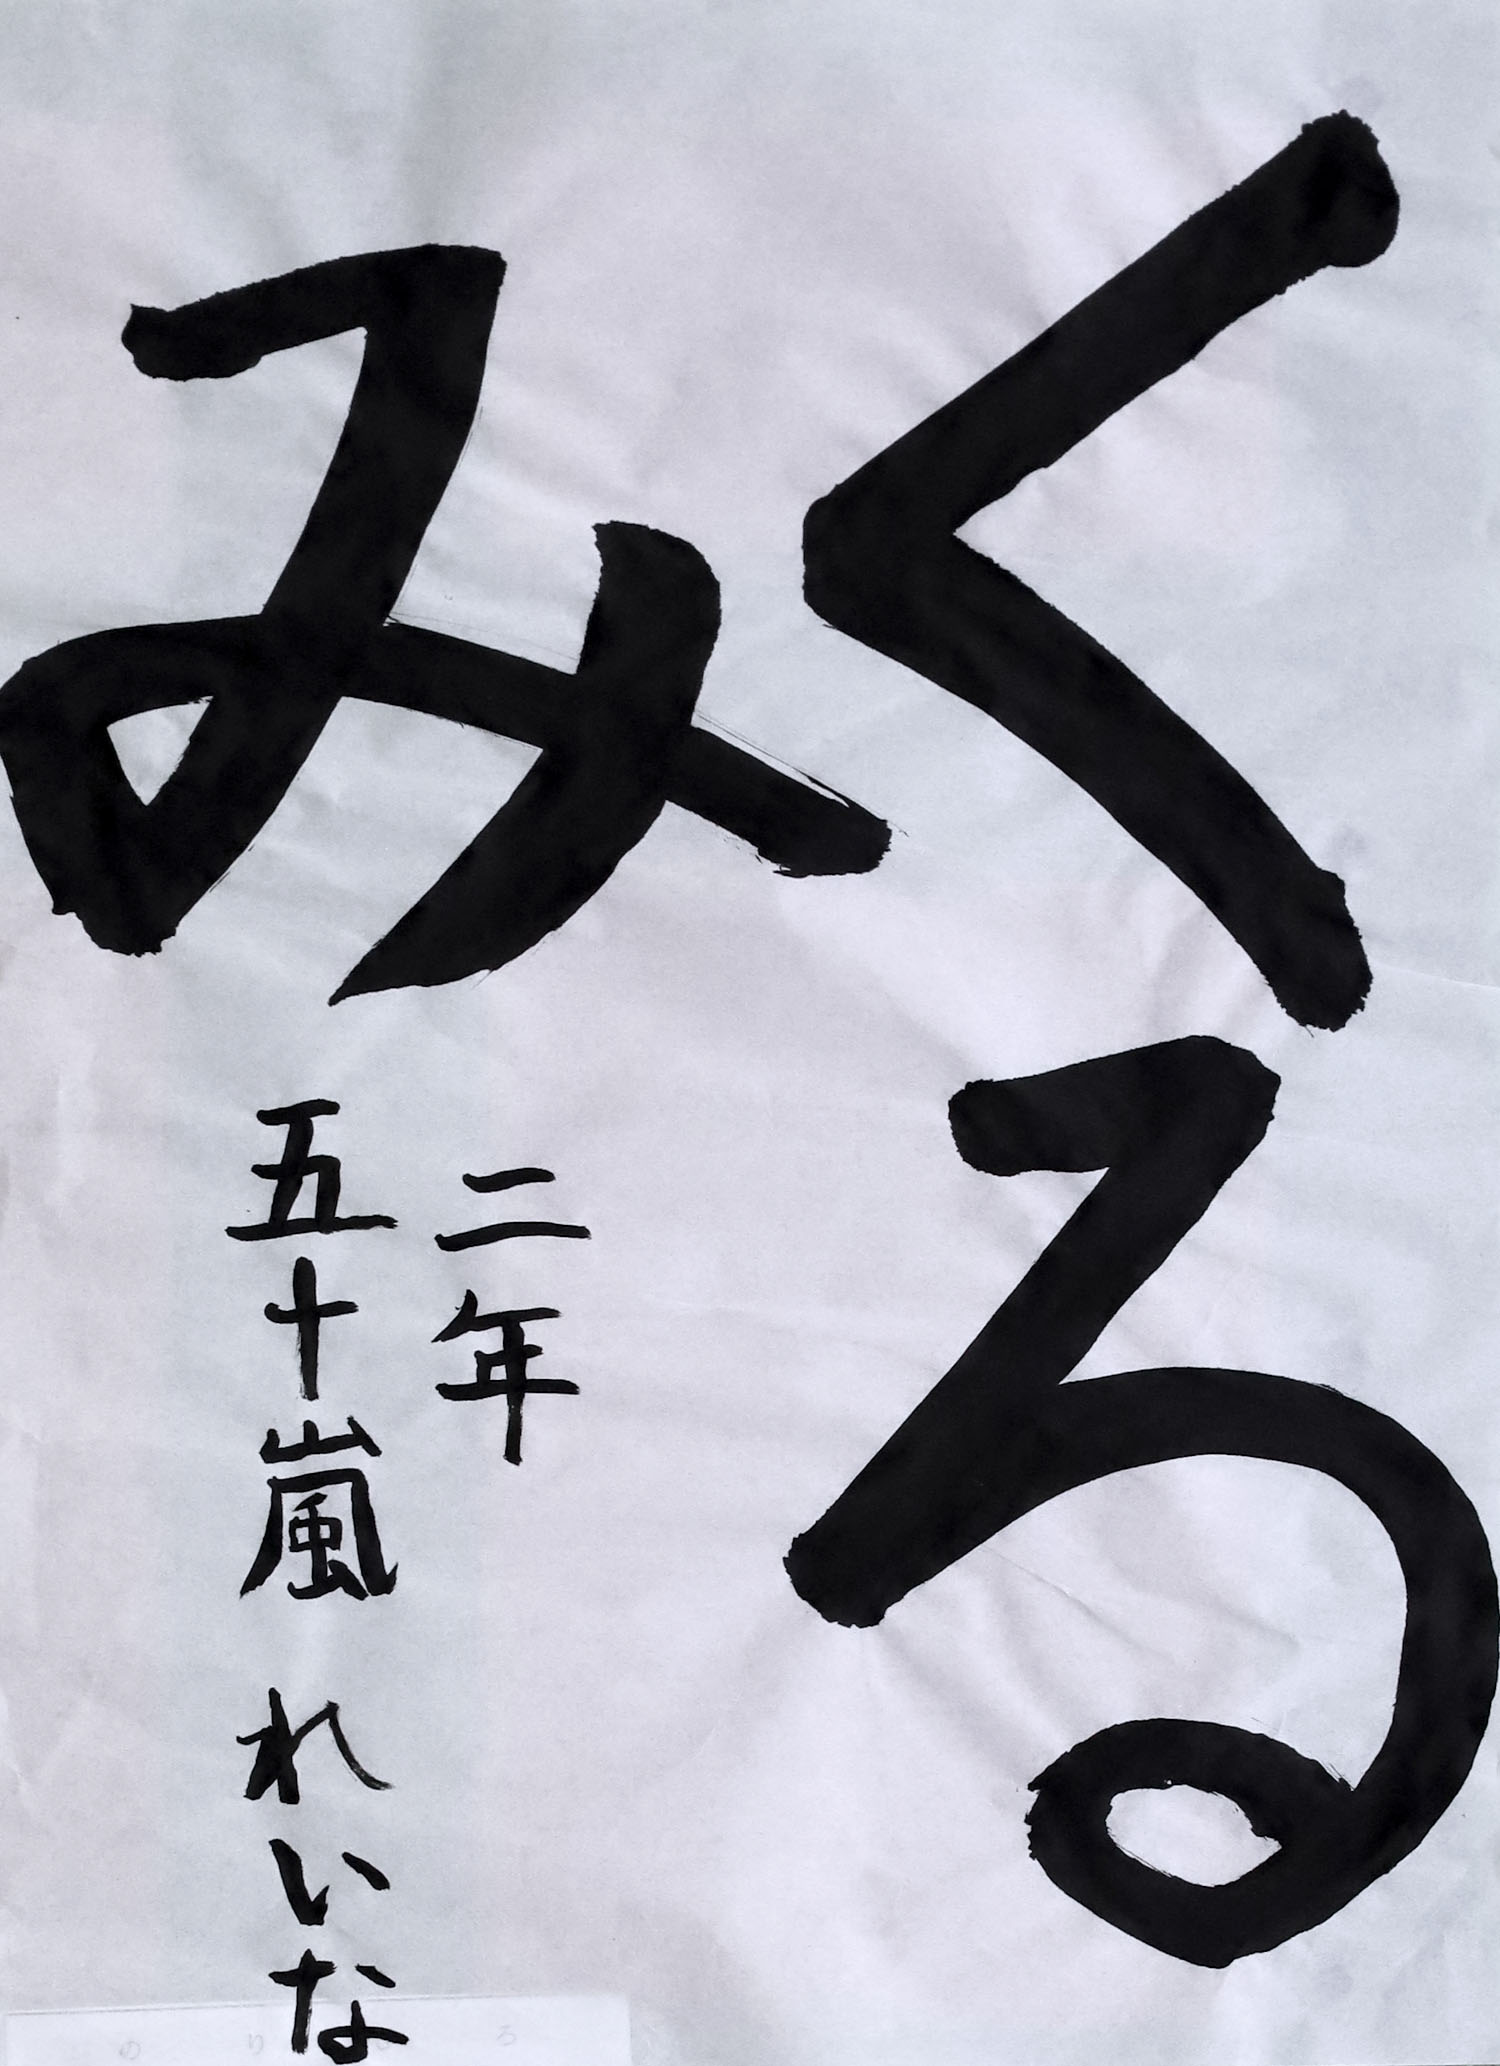 くる
み
二年
五十嵐 れいな